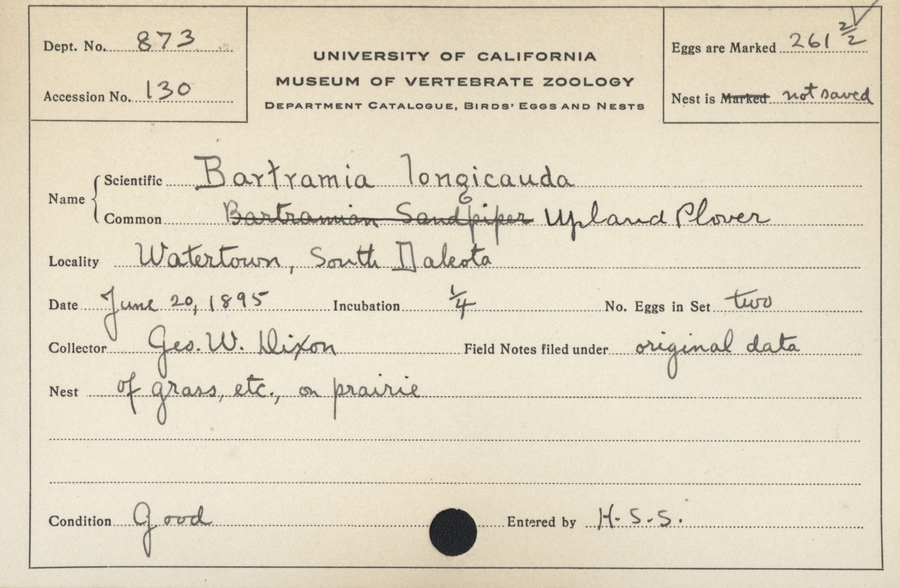 Dept. No. 873
Accession No. 130
UNIVERSITY OF CALIFORNIA
MUSEUM OF VERTEBRATE ZOOLOGY
DEPARTMENT CATALOGUE, BIRDS' EGGS AND NESTS
Eggs are Marked 261 2/2
Nest is Marked not saved
Name
Scientific Bartramia longicauda
Common Bartramian Sandpiper Upland Plover
Locality Watertown, South Dakota
Date June 20, 1895 Incubation 1/4 No. Eggs in Set two
Collector Geo. W. Dixon Field Notes filed under original data
Nest of grass, etc., on prairie
Condition Good Entered by H. S. S.